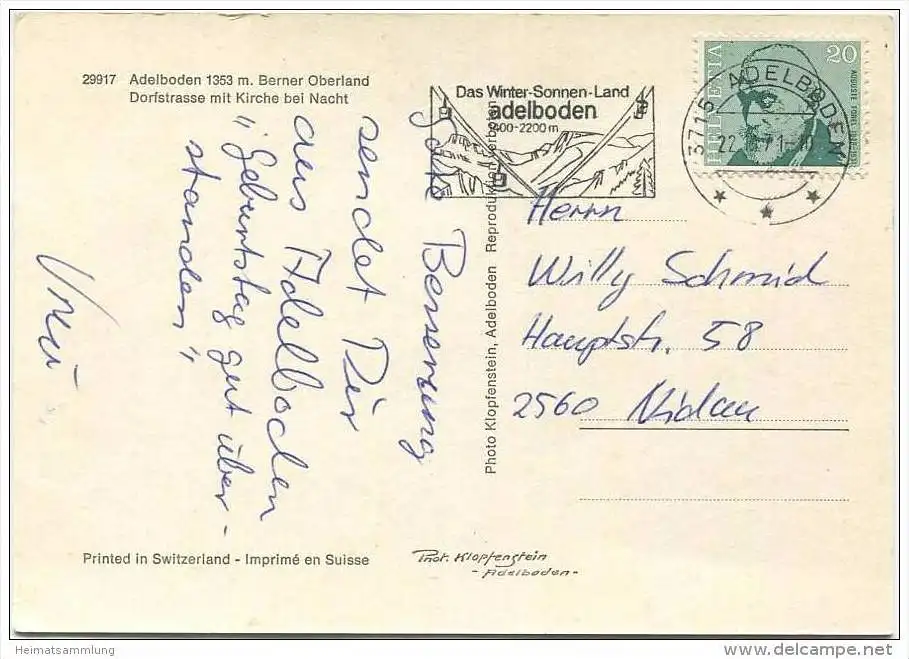 29917 Adelboden 1353 m. Berner Oberland
Dorfstrasse mit Kirche bei Nacht
Gute Besserung
sendet Dir
aus Adelboden
"Geburtstag gut über-
standen"
Vreni
Printed in Switzerland - Imprimé en Suisse
Phot. Klopfenstein
- Adelboden -
Photo Klopfenstein, Adelboden Reproduktion verboten
Das Winter-Sonnen-Land
adelboden
1400-2200 m
HELVETIA
20
AUGUSTE FOREL 1848-1931
3715 ADELBODEN
Herrn
Willy Schmid
Hauptstr. 58
2560 Nidau
Heimatsammlung
www.delcampe.net